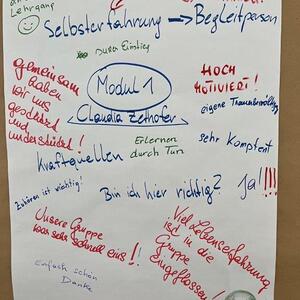 Lehrgang
Selbsterfahrung → Begleitperson
guter Einstieg
gemeinsam
haben
wir uns
gestärkt
und
unterstützt!
Modul 1
Claudia Zethofer
HOCH
MOTIVIERT!
eigene
sehr kompetent
Kraftquellen
Erlernen
durch Tun
Zuhören ist wichtig!
Bin ich hier richtig? Ja!!!!
Unsere Gruppe
war sehr schnell eins!!
Viel Lebenserfahrung
ist in die
Gruppe
eingeflossen!
Einfach schön
Danke